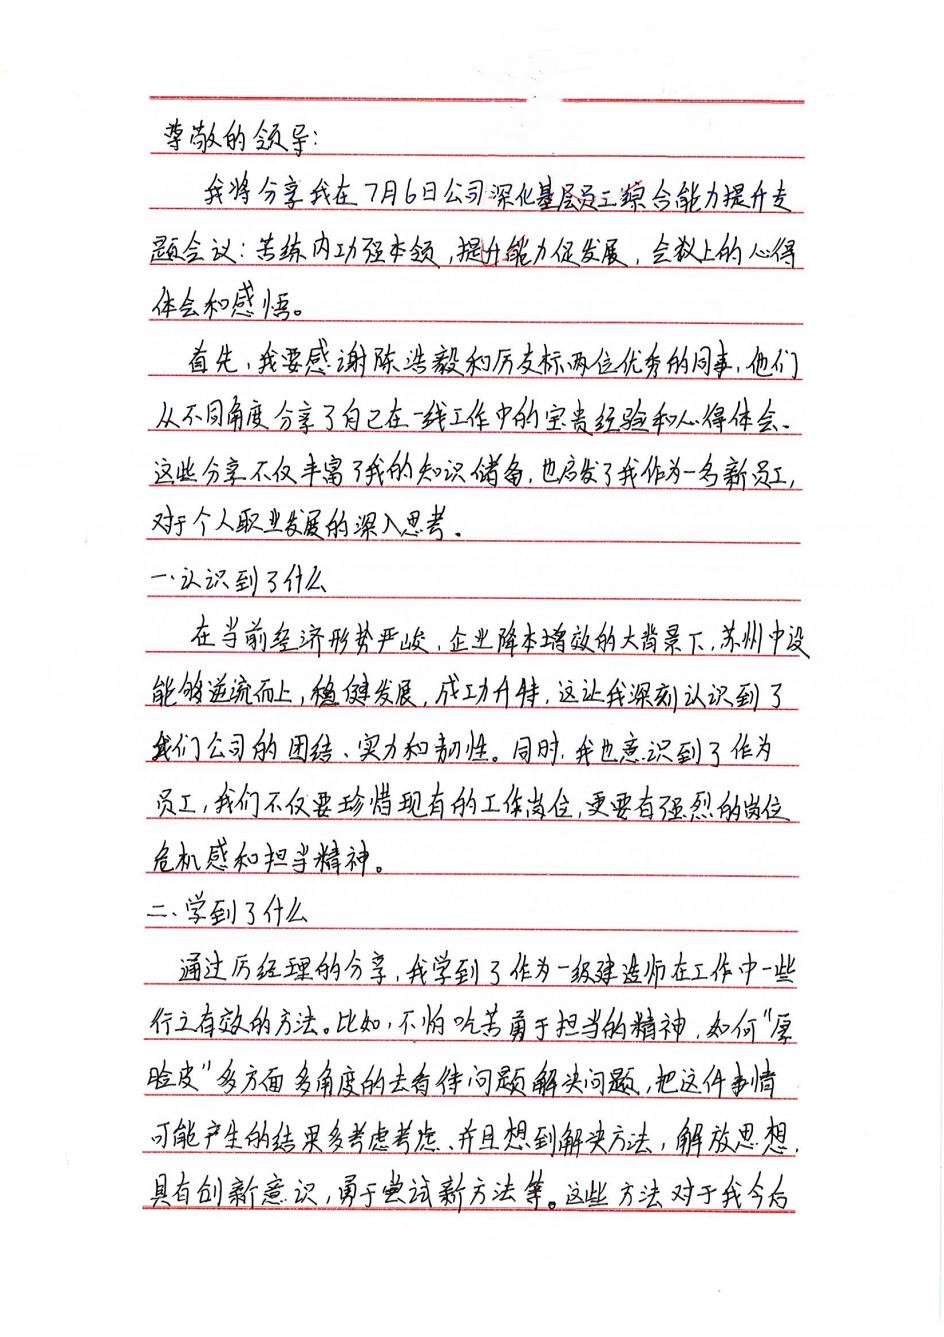 尊敬的领导：
我将分享我在7月6日公司深化基层员工综合能力提升专
题会议：苦练内功强本领，提升能力促发展，会议上的心得
体会和感悟。
首先，我要感谢陈浩毅和厉友标两位优秀的同事，他们
从不同角度分享了自己在一线工作中的宝贵经验和心得体会、
这些分享不仅丰富了我的知识储备，也启发了我作为一名新员工，
对于个人职业发展的深入思考。
一、认识到了什么
在当前经济形势严峻，企业降本增效的大背景下，苏州中设
能够逆流而上，稳健发展，成功升特，这让我深刻认识到了
我们公司的团结、实力和韧性。同时，我也意识到了作为
员工，我们不仅要珍惜现有的工作岗位，更要有强烈的岗位
危机感和担当精神。
二、学到了什么
通过厉经理的分享，我学到了作为一级建造师在工作中一些
行之有效的方法。比如，不怕吃苦勇于担当的精神，如何“厚
脸皮”多方面多角度的去看待问题解决问题，把这件事情
可能产生的结果多考虑考虑、并且想到解决方法，解放思想，
具有创新意识，勇于尝试新方法等。这些方法对于我今后